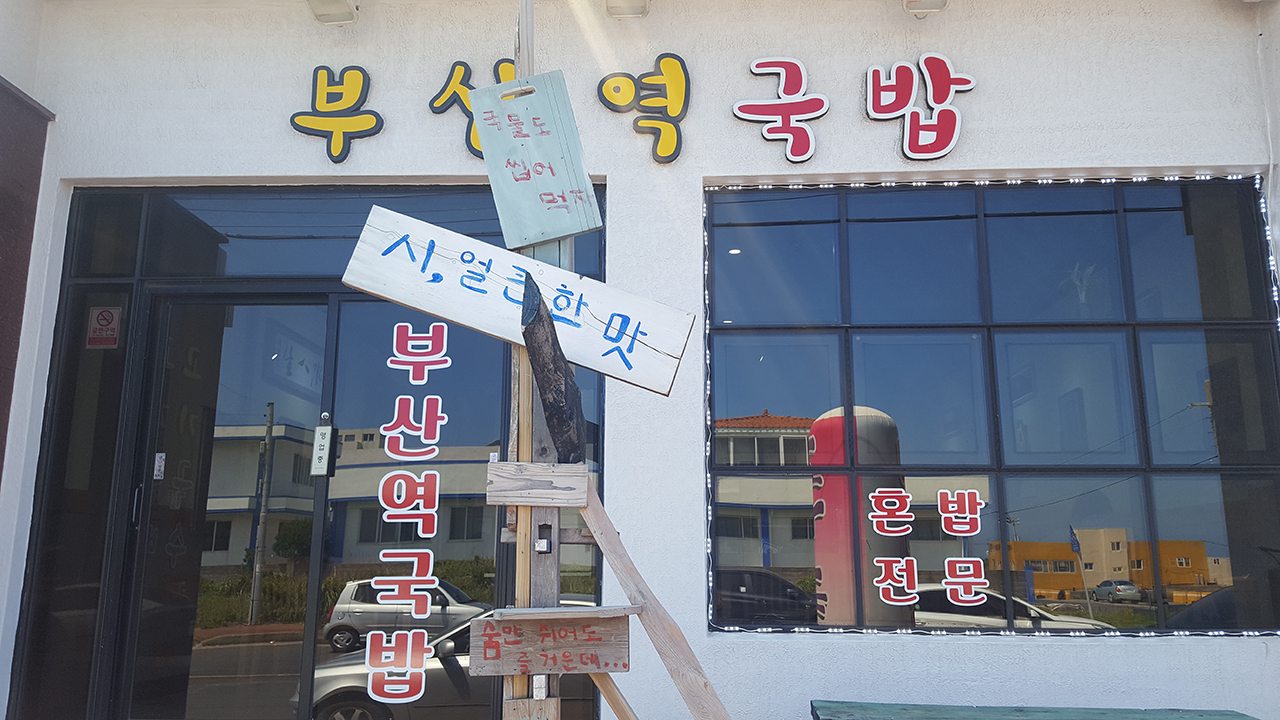 부산역국밥
국물도
씹어
먹자
시,얼큰한맛
부산역국밥
혼밥
전문
숨만 쉬어도
즐거운데...